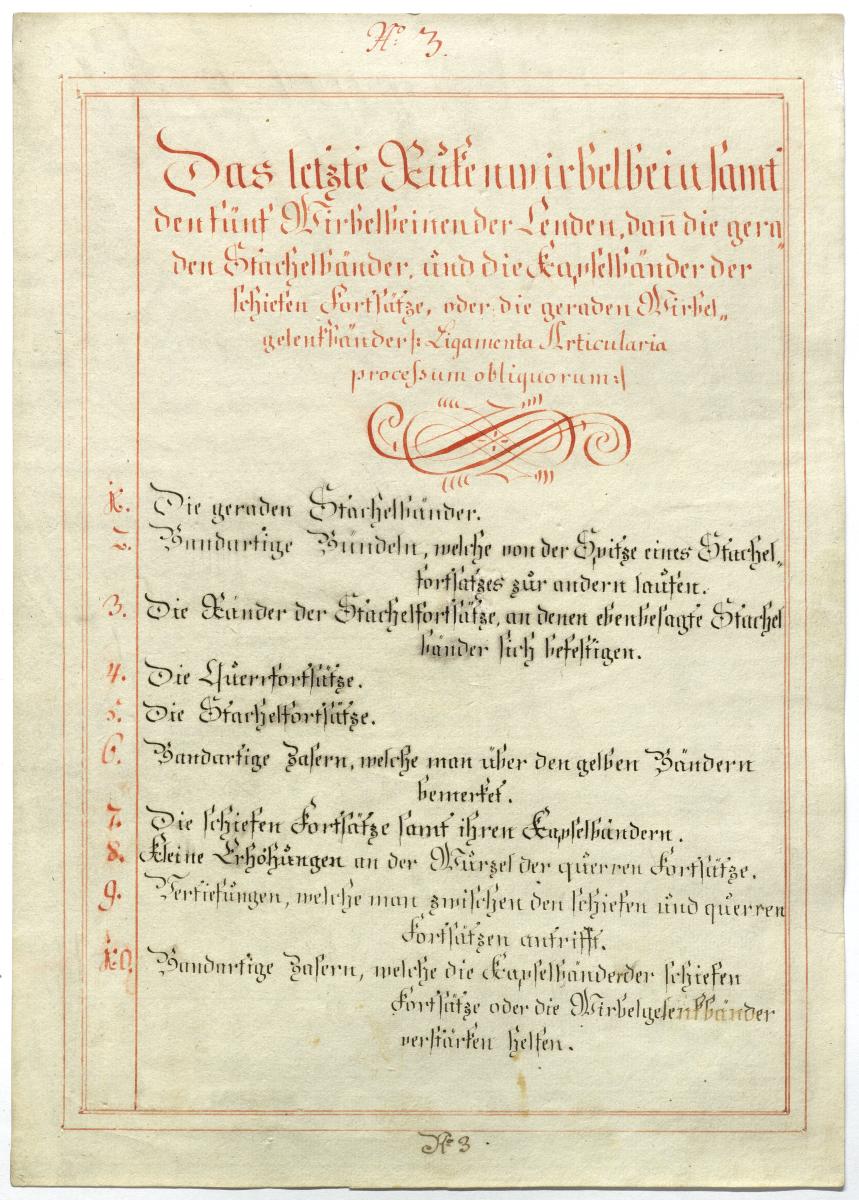 No 3.
Das letzte Rükenwirbelbein samt
den fünf Wirbelbeinen der Lenden, dan̄ die gera„
den Stachelbänder, und die Kapselbänder der
schiefen Fortsätze, oder die geraden Wirbel„
gelenkbänder |: Ligamenta Articularia
processum obliquorum :|
1. Die geraden Stachelbänder.
2. Bandartige Bündeln, welche von der Spitze eines Stachel„
fortsatzes zur andern laufen.
3. Die Ränder der Stachelfortsätze, an denen ebenbesagte Stachel
bänder sich befestigen.
4. Die Querrfortsätze.
5. Die Stachelfortsätze.
6. Bandartige Zasern, welche man über den gelben Bändern
bemerket.
7. Die schiefen Fortsätze samt ihren Kapselbändern.
8. Kleine Erhöhungen an der Wurzel der querren Fortsätze.
9. Vertiefungen, welche man zwischen den schiefen und querren
Fortsätzen antrifft.
10. Bandartige Zasern, welche die Kapselbänder der schiefen
Fortsätze oder die Wirbelgelenkbänder
verstärken helfen.
No 3.